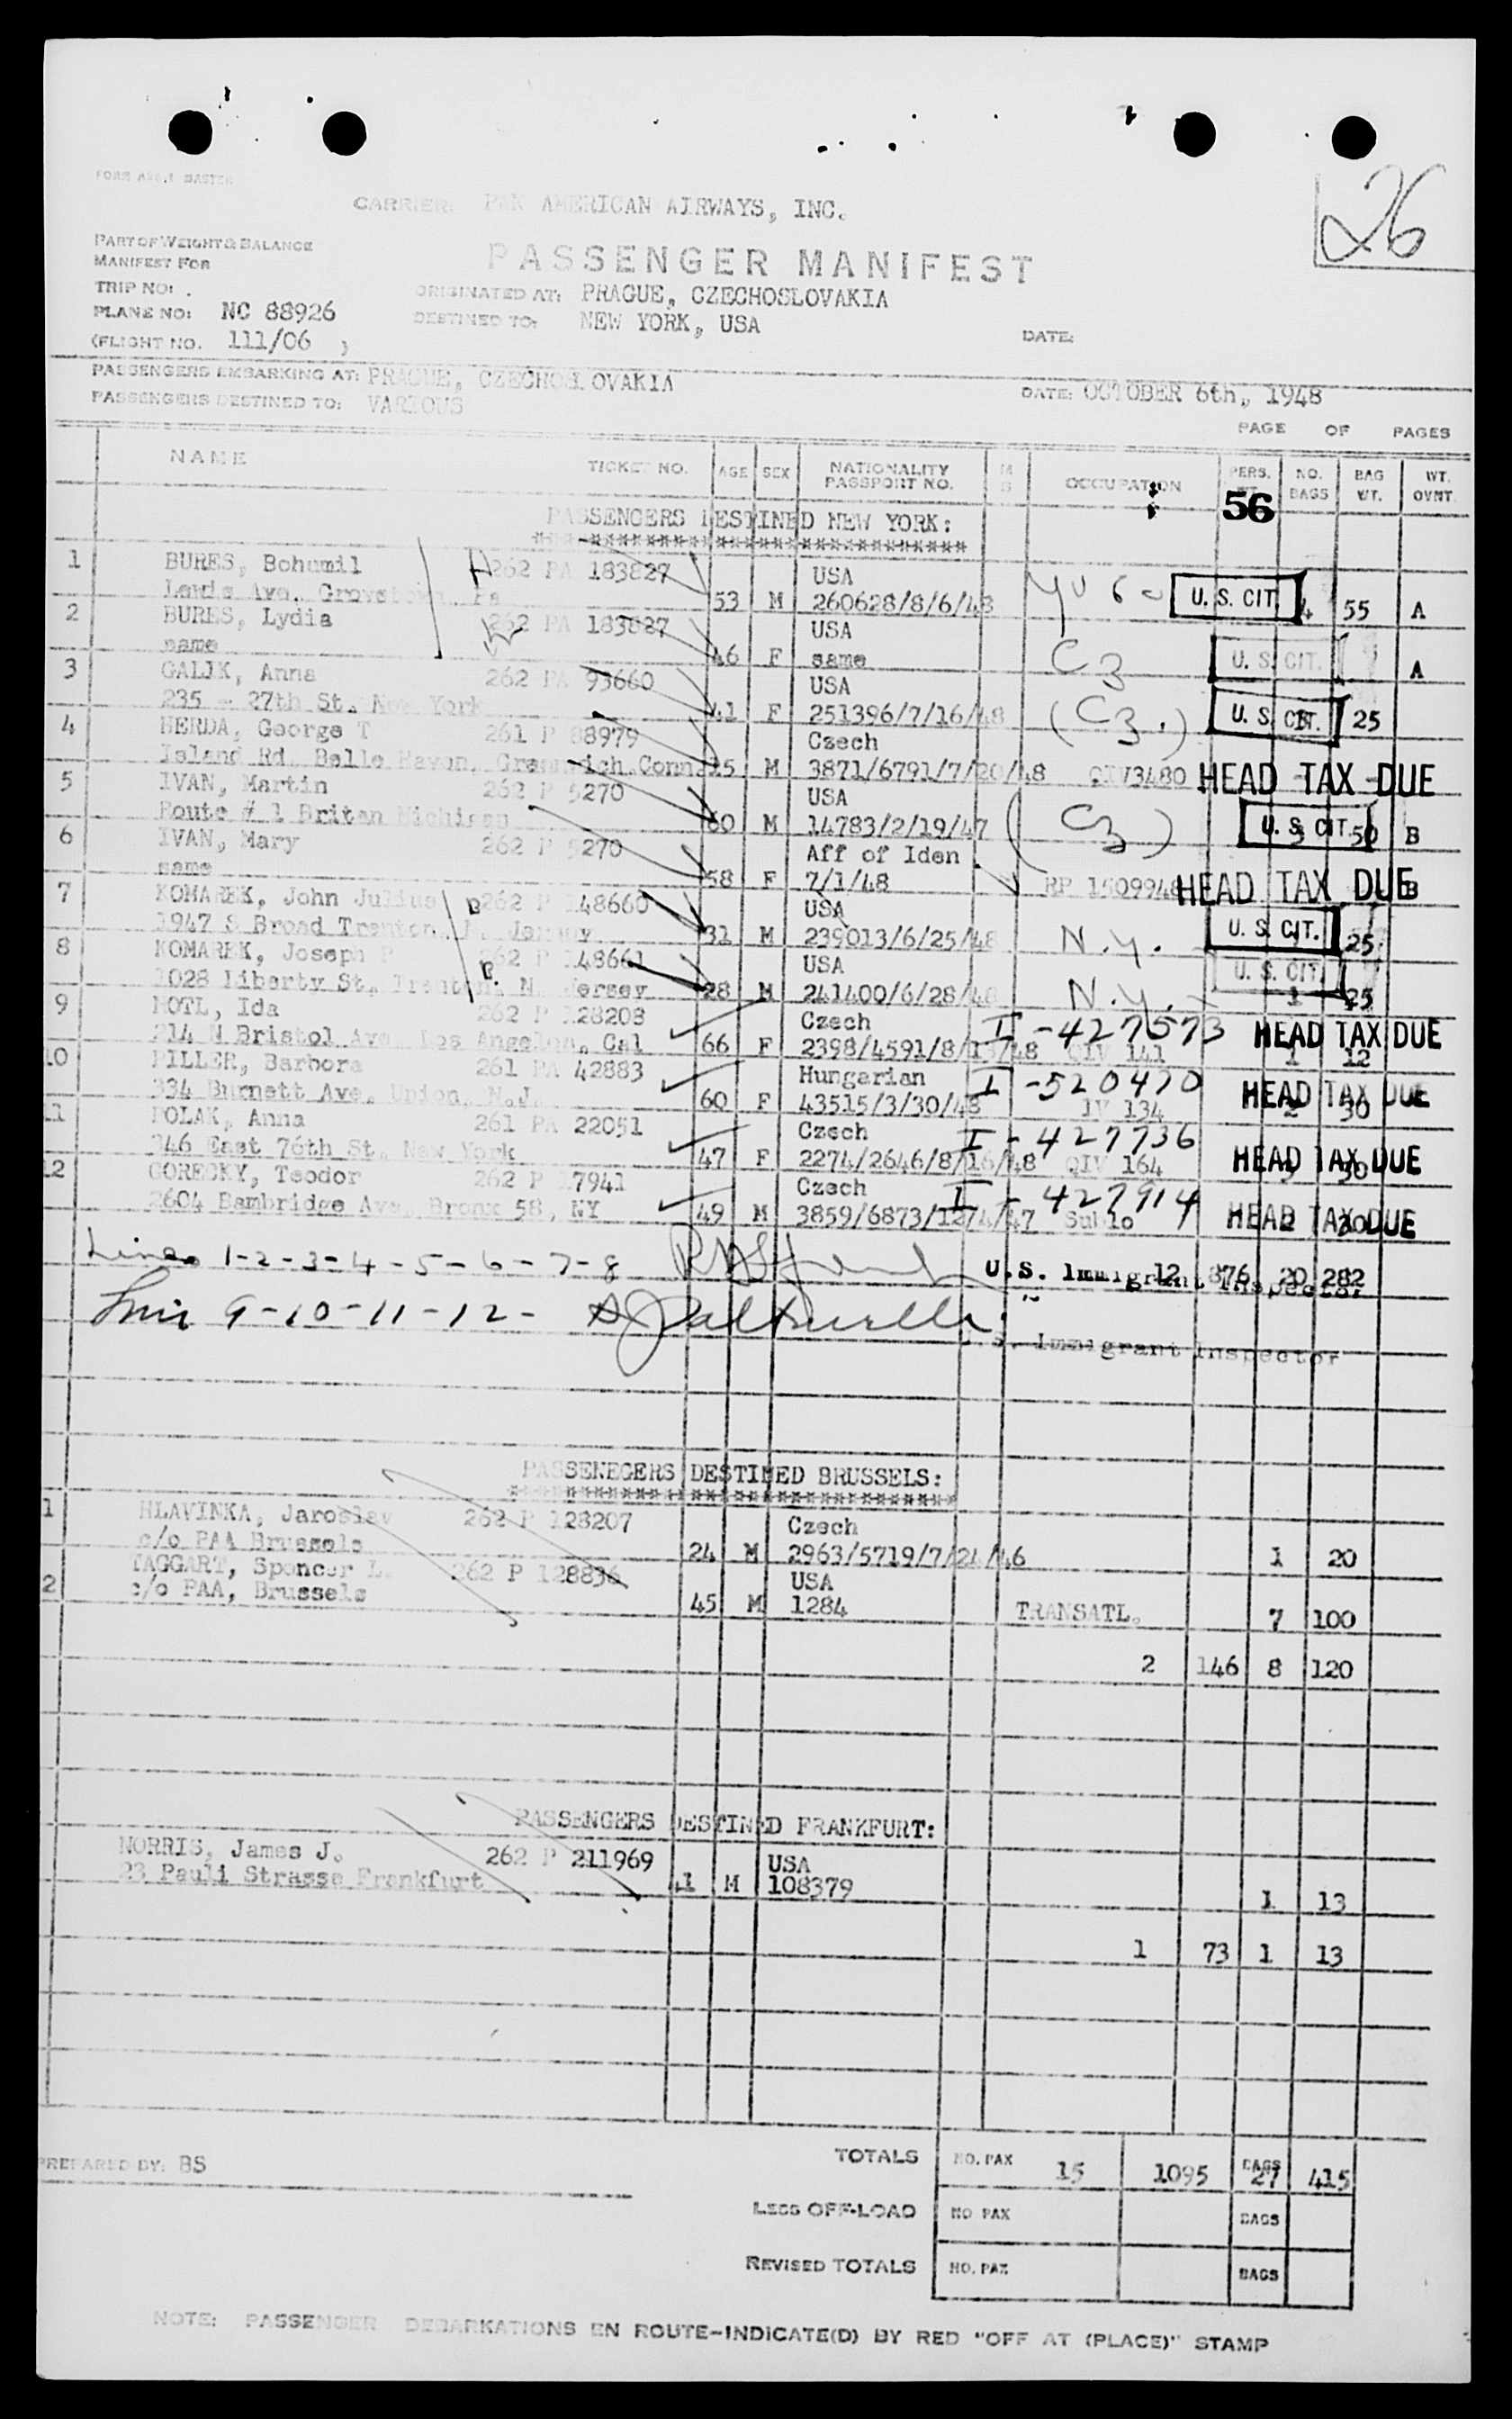 26
CARRIER: PAN AMERICAN AIRWAYS, INC.
PART OF WEIGHT & BALANCE
MANIFEST FOR
PASSENGER MANIFEST
TRIP NO:
ORIGINATED AT: PRAGUE, CZECHOSLOVAKIA
PLANE NO: NC 88926
DESTINED TO: NEW YORK, USA
(FLIGHT NO. 111/06 )
DATE:
PASSENGERS EMBARKING AT: PRAGUE, CZECHOSLOVAKIA
DATE: OCTOBER 6th, 1948
PASSENGERS DESTINED TO: VARIOUS
PAGE OF PAGES
NAME TICKET NO. AGE SEX NATIONALITY PASSPORT NO. M S OCCUPATION PERS. WT. NO. BAGS BAG WT. WT. OVNT.
56
PASSENGERS DESTINED NEW YORK:
1 BURES, Bohumil 262 PA 183827 USA
Lewis Ave, 53 M 260628/8/6/48 U. S. CIT 4 55 A
2 BURES, Lydia 262 PA 183827 USA
same 46 F same Cz U. S. CIT. A
3 GALIK, Anna 262 PA 93660 USA
235 - 27th St. New York 41 F 251396/7/16/48 (Cz.) U. S. CIT. 25
4 HERDA, George T 261 P 88979 Czech
Island Rd. Belle Haven, Greenwich Conn. 15 M 3871/6791/7/20/48 QIV3480 HEAD TAX DUE
5 IVAN, Martin 262 P 5270 USA
Route # 1 Briton Michigan 60 M 14783/2/19/47 (Cz) U. S. CIT. 3 50 B
6 IVAN, Mary 262 P 5270 Aff of Iden
same 58 F 7/1/48 RP 1509948 HEAD TAX DUE B
7 KOMAREK, John Julius 262 P 148660 USA
1947 S Broad Trenton, N. Jersey 31 M 239013/6/25/48 N.Y. U. S. CIT. 25
8 KOMAREK, Joseph P 262 P 148661 USA
1028 Liberty St, Trenton, N. Jersey 28 M 241400/6/28/48 N.Y. U. S. CIT. 1 25
9 MOTL, Ida 262 P 128208 Czech I-427573 HEAD TAX DUE
214 N Bristol Ave Los Angeles, Cal 66 F 2398/4591/8/13/48 QIV 141 1 12
10 PILLER, Barbora 261 PA 42883 Hungarian I-520470 HEAD TAX DUE
334 Burnett Ave. Union, N.J. 60 F 43515/3/30/48 IV 134 2 30
11 POLAK, Anna 261 PA 22051 Czech I-427736
346 East 76th St. New York 47 F 2274/2646/8/16/48 QIV 164 HEAD TAX DUE 30
12 GORECKY, Teodor 262 P 17941 Czech I-427914
2604 Bambridge Ave, Bronx 58, NY 49 M 3859/6873/12/4/47 HEAD TAX DUE 2 30
Lines 1-2-3-4-5-6-7-8 U.S. Immigrant Inspector 12 876 20 282
Line 9-10-11-12- U.S. Immigrant Inspector
PASSENEGERS DESTINED BRUSSELS:
1 HLAVINKA, Jaroslav 262 P 128207 Czech
c/o PAA Brussels 24 M 2963/5719/7/24/46 1 20
2 TAGGART, Spencer L. 262 P 128836 USA
c/o PAA, Brussels 45 M 1284 TRANSATL. 7 100
2 146 8 120
PASSENGERS DESTINED FRANKFURT:
NORRIS, James J. 262 P 211969 USA
23 Pauli Strasse Frankfurt 41 M 108379 1 13
1 73 1 13
PREPARED BY: BS
TOTALS NO. PAX 15 1095 BAGS 27 415
LESS OFF-LOAD NO PAX BAGS
REVISED TOTALS NO. PAX BAGS
NOTE: PASSENGER DEBARKATIONS EN ROUTE-INDICATE(D) BY RED "OFF AT (PLACE)" STAMP